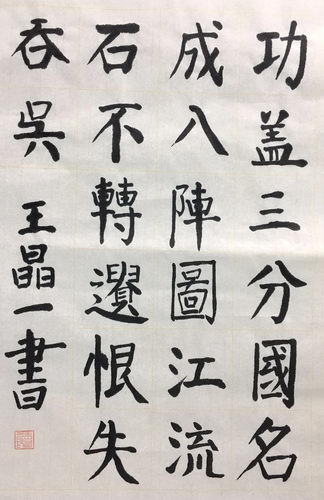 功盖三分國名
成八陣圖江流
石不轉遺恨失
吞吳 王晶一書